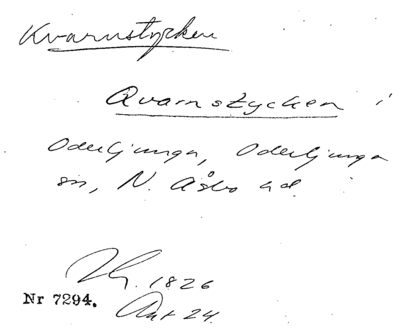 Kvarnstycken
Qvarnstycken i
Oderljunga, Oderljunga
sn, N. Åsbo hd
1826
Nr 7294. Akt 24.